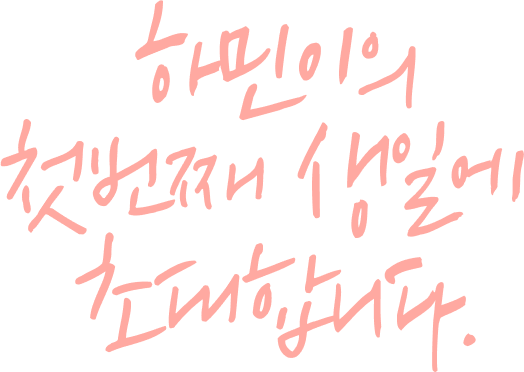 하민이의
첫번째 생일에
초대합니다.